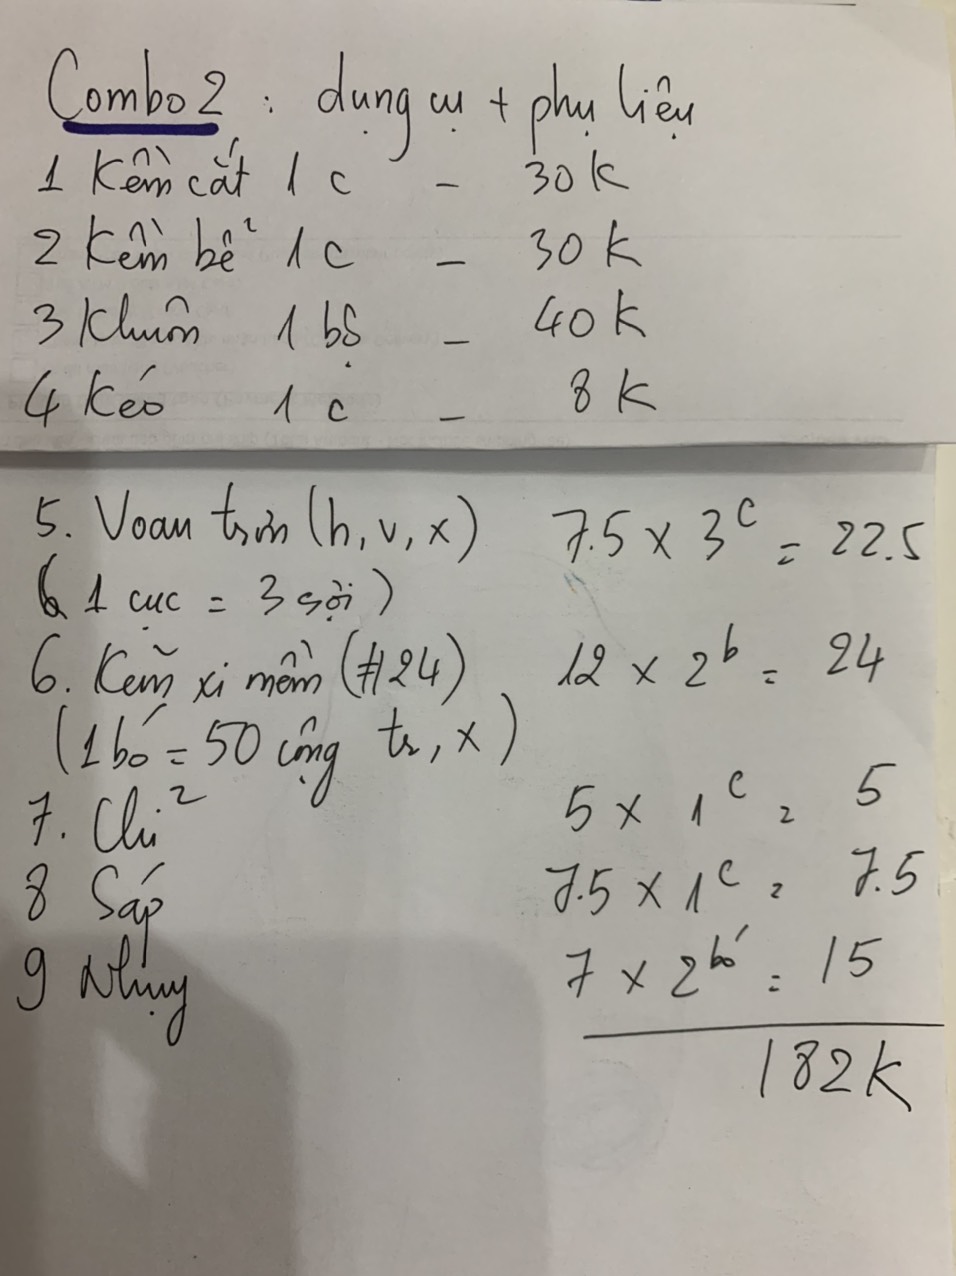 Combo 2 : dụng cụ + phụ liệu
1 Kềm cắt 1 c - 30 K
2 Kềm bẻ 1 c - 30 K
3 Khuôn 1 bộ - 40 K
4 Kéo 1 c - 8 K
5. Voan trơn (h, v, x) 7.5 x 3 c = 22.5
(1 cục = 3 sợi)
6. Kẽm xi mềm (#24) 12 x 2 b = 24
(1 bó = 50 cọng tr, x)
7. Chỉ 5 x 1 c = 5
8 Sáp 7.5 x 1 c = 7.5
9 Nhụy 7 x 2 bó = 15
182K